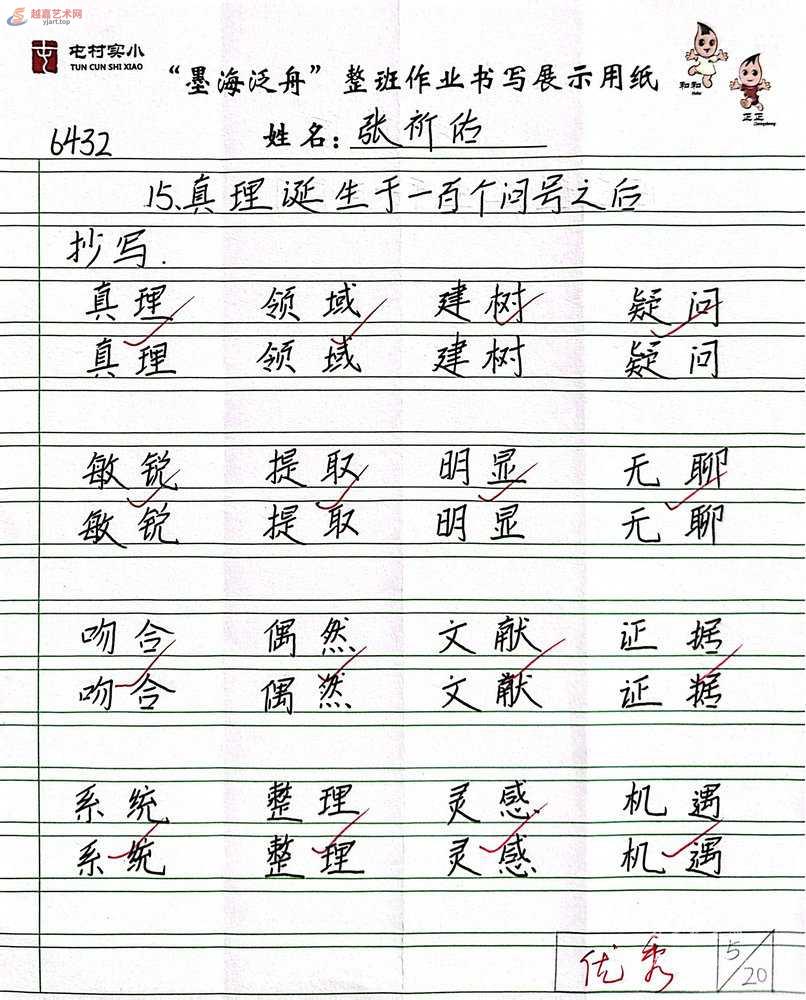 越嘉艺术网
yjart.top
屯村实小
TUN CUN SHI XIAO
“墨海泛舟”整班作业书写展示用纸
和和
正正
6432 姓名：张祈佑
15.真理诞生于一百个问号之后
抄写.
真理 领域 建树 疑问
真理 领域 建树 疑问
敏锐 提取 明显 无聊
敏锐 提取 明显 无聊
吻合 偶然 文献 证据
吻合 偶然 文献 证据
系统 整理 灵感 机遇
系统 整理 灵感 机遇
优秀 5/20